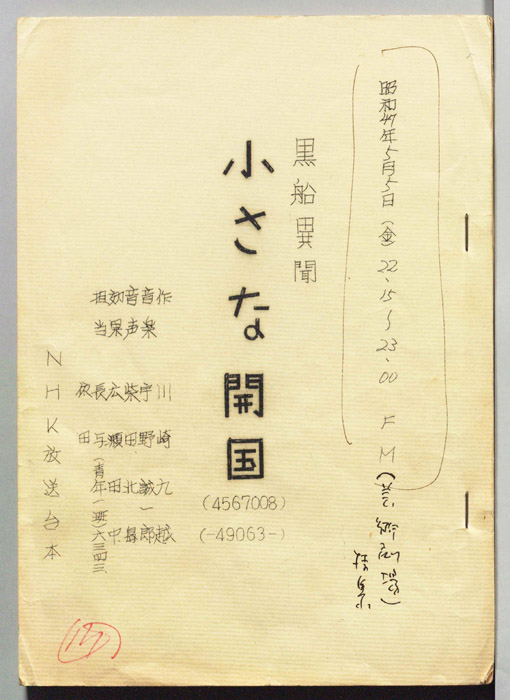 昭和47年5月5日(金)22.15〜23.00 FM(芸術劇場)
黒船異聞
小さな開国
(4567008)
(-49063-)
作 川崎九越
音楽 宇野誠一郎
音声 柴田 北
効果 広瀬 田中
担当 長与 (青年(班)六三四三
田
NHK放送台本